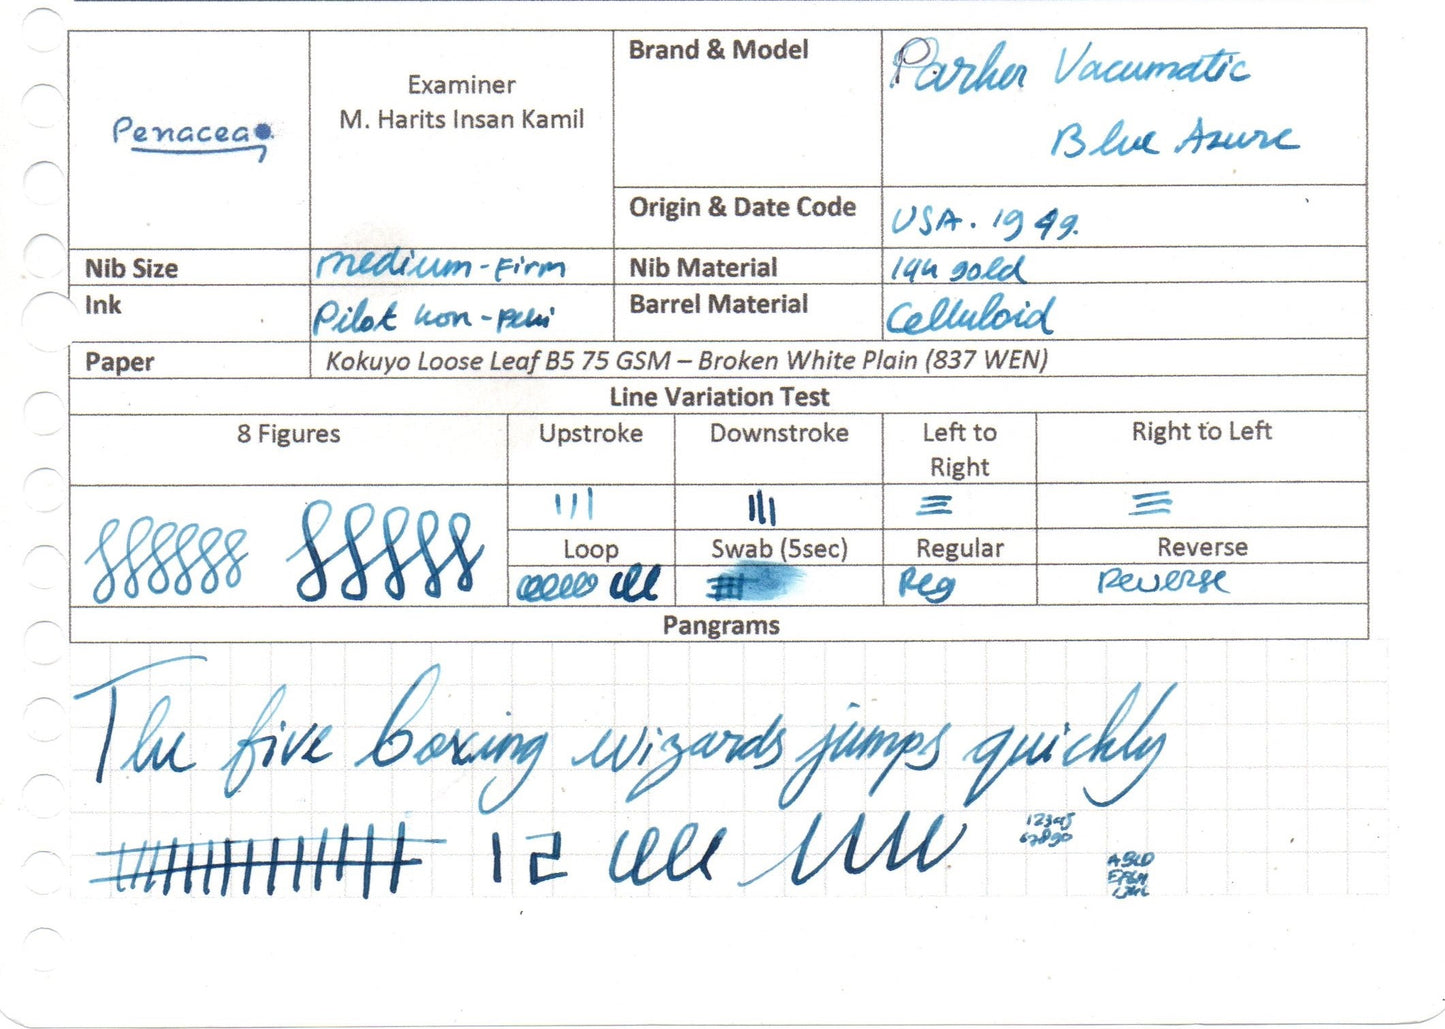 Penacea
Examiner
M. Harits Insan Kamil
Brand & Model
Parker Vacumatic
Blue Azure
Origin & Date Code
USA. 1949.
Nib Size
medium-Firm
Nib Material
14k gold
Ink
Pilot kon-peki
Barrel Material
Celluloid
Paper
Kokuyo Loose Leaf B5 75 GSM – Broken White Plain (837 WEN)
Line Variation Test
8 Figures
Upstroke
Downstroke
Left to
Right
Right to Left
Loop
Swab (5sec)
Regular
Reverse
Reg
Reverse
Pangrams
The five boxing wizards jumps quickly
12
12345
67890
ABCD